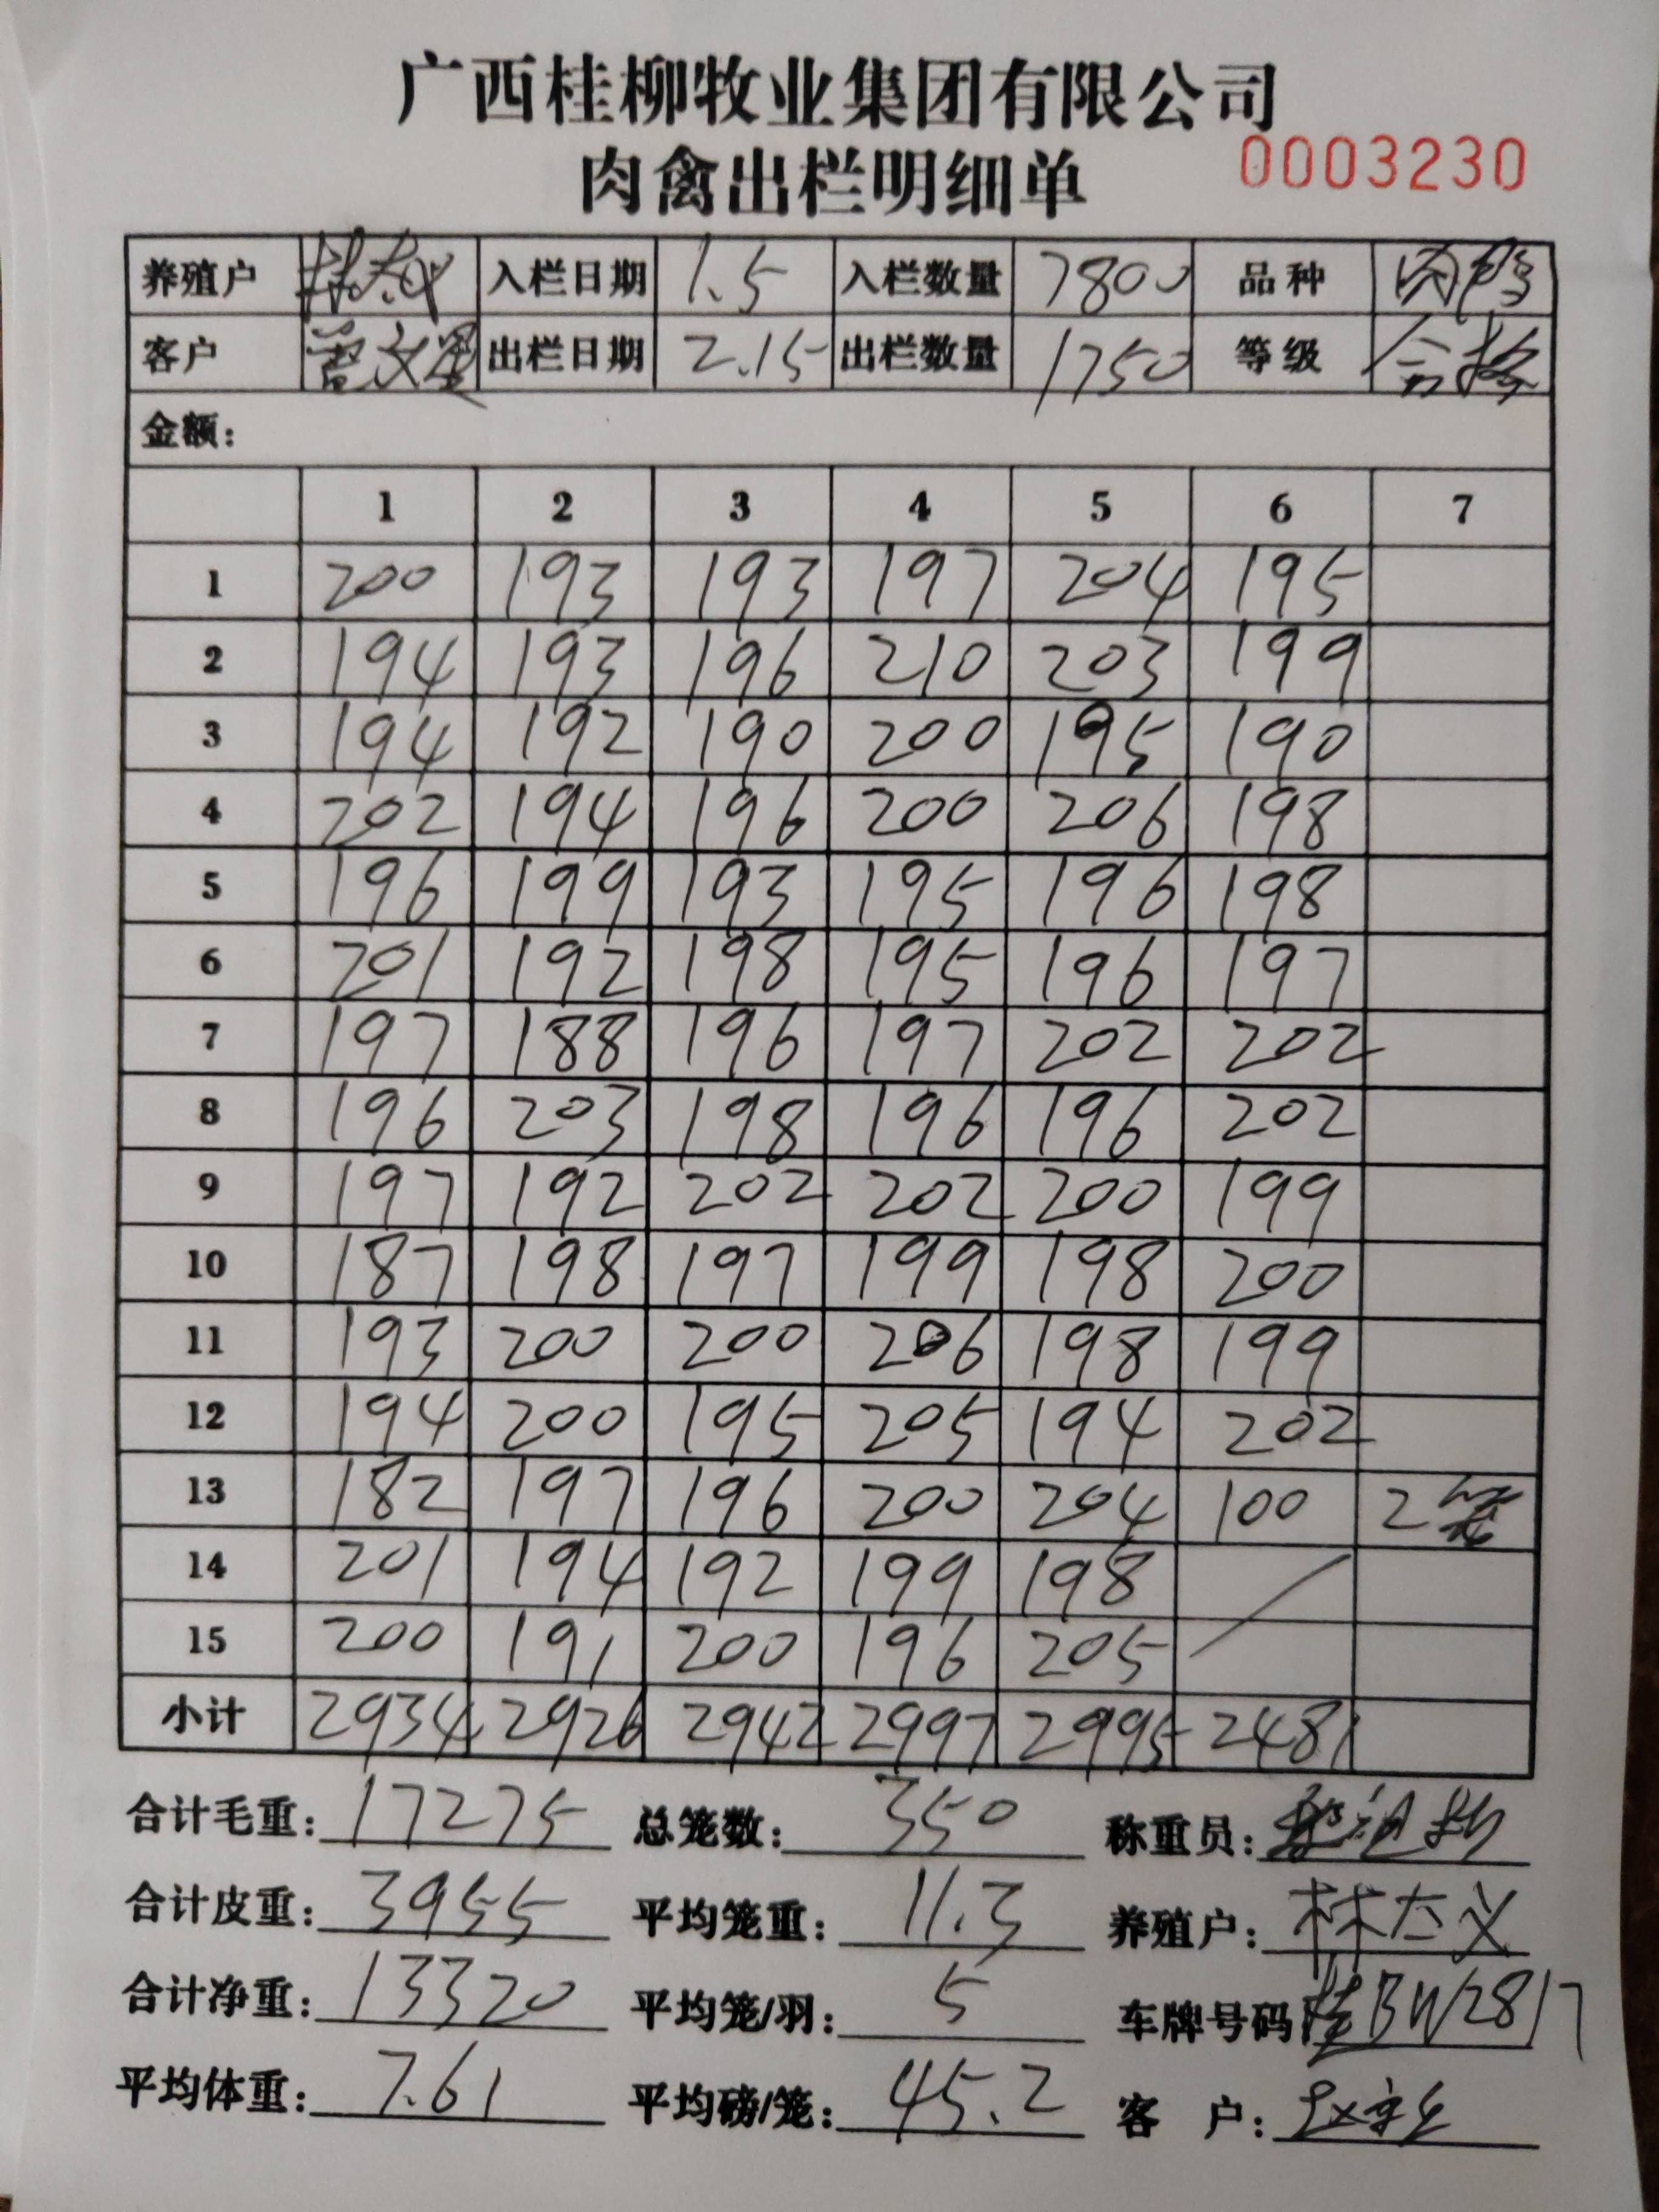 广西桂柳牧业集团有限公司
肉禽出栏明细单 0003230
养殖户 林太义 入栏日期 1.5 入栏数量 7800 品种 肉鸭
客户 曾文星 出栏日期 2.15 出栏数量 1750 等级 合格
金额:
1 2 3 4 5 6 7
1 200 193 193 197 204 195
2 194 193 196 210 203 199
3 194 192 190 200 195 190
4 202 194 196 200 206 198
5 196 199 193 195 196 198
6 201 192 198 195 196 197
7 197 188 196 197 202 202
8 196 203 198 196 196 202
9 197 192 202 202 200 199
10 187 198 197 199 198 200
11 193 200 200 206 198 199
12 194 200 195 205 194 202
13 182 197 196 200 204 100 2笼
14 201 194 192 199 198
15 200 191 200 196 205
小计 2934 2926 2942 2997 2995 2481
合计毛重: 17275 总笼数: 350 称重员:
合计皮重: 3955 平均笼重: 11.3 养殖户: 林太义
合计净重: 13320 平均笼/羽: 5 车牌号码: 桂BW2817
平均体重: 7.61 平均磅/笼: 45.2 客 户: